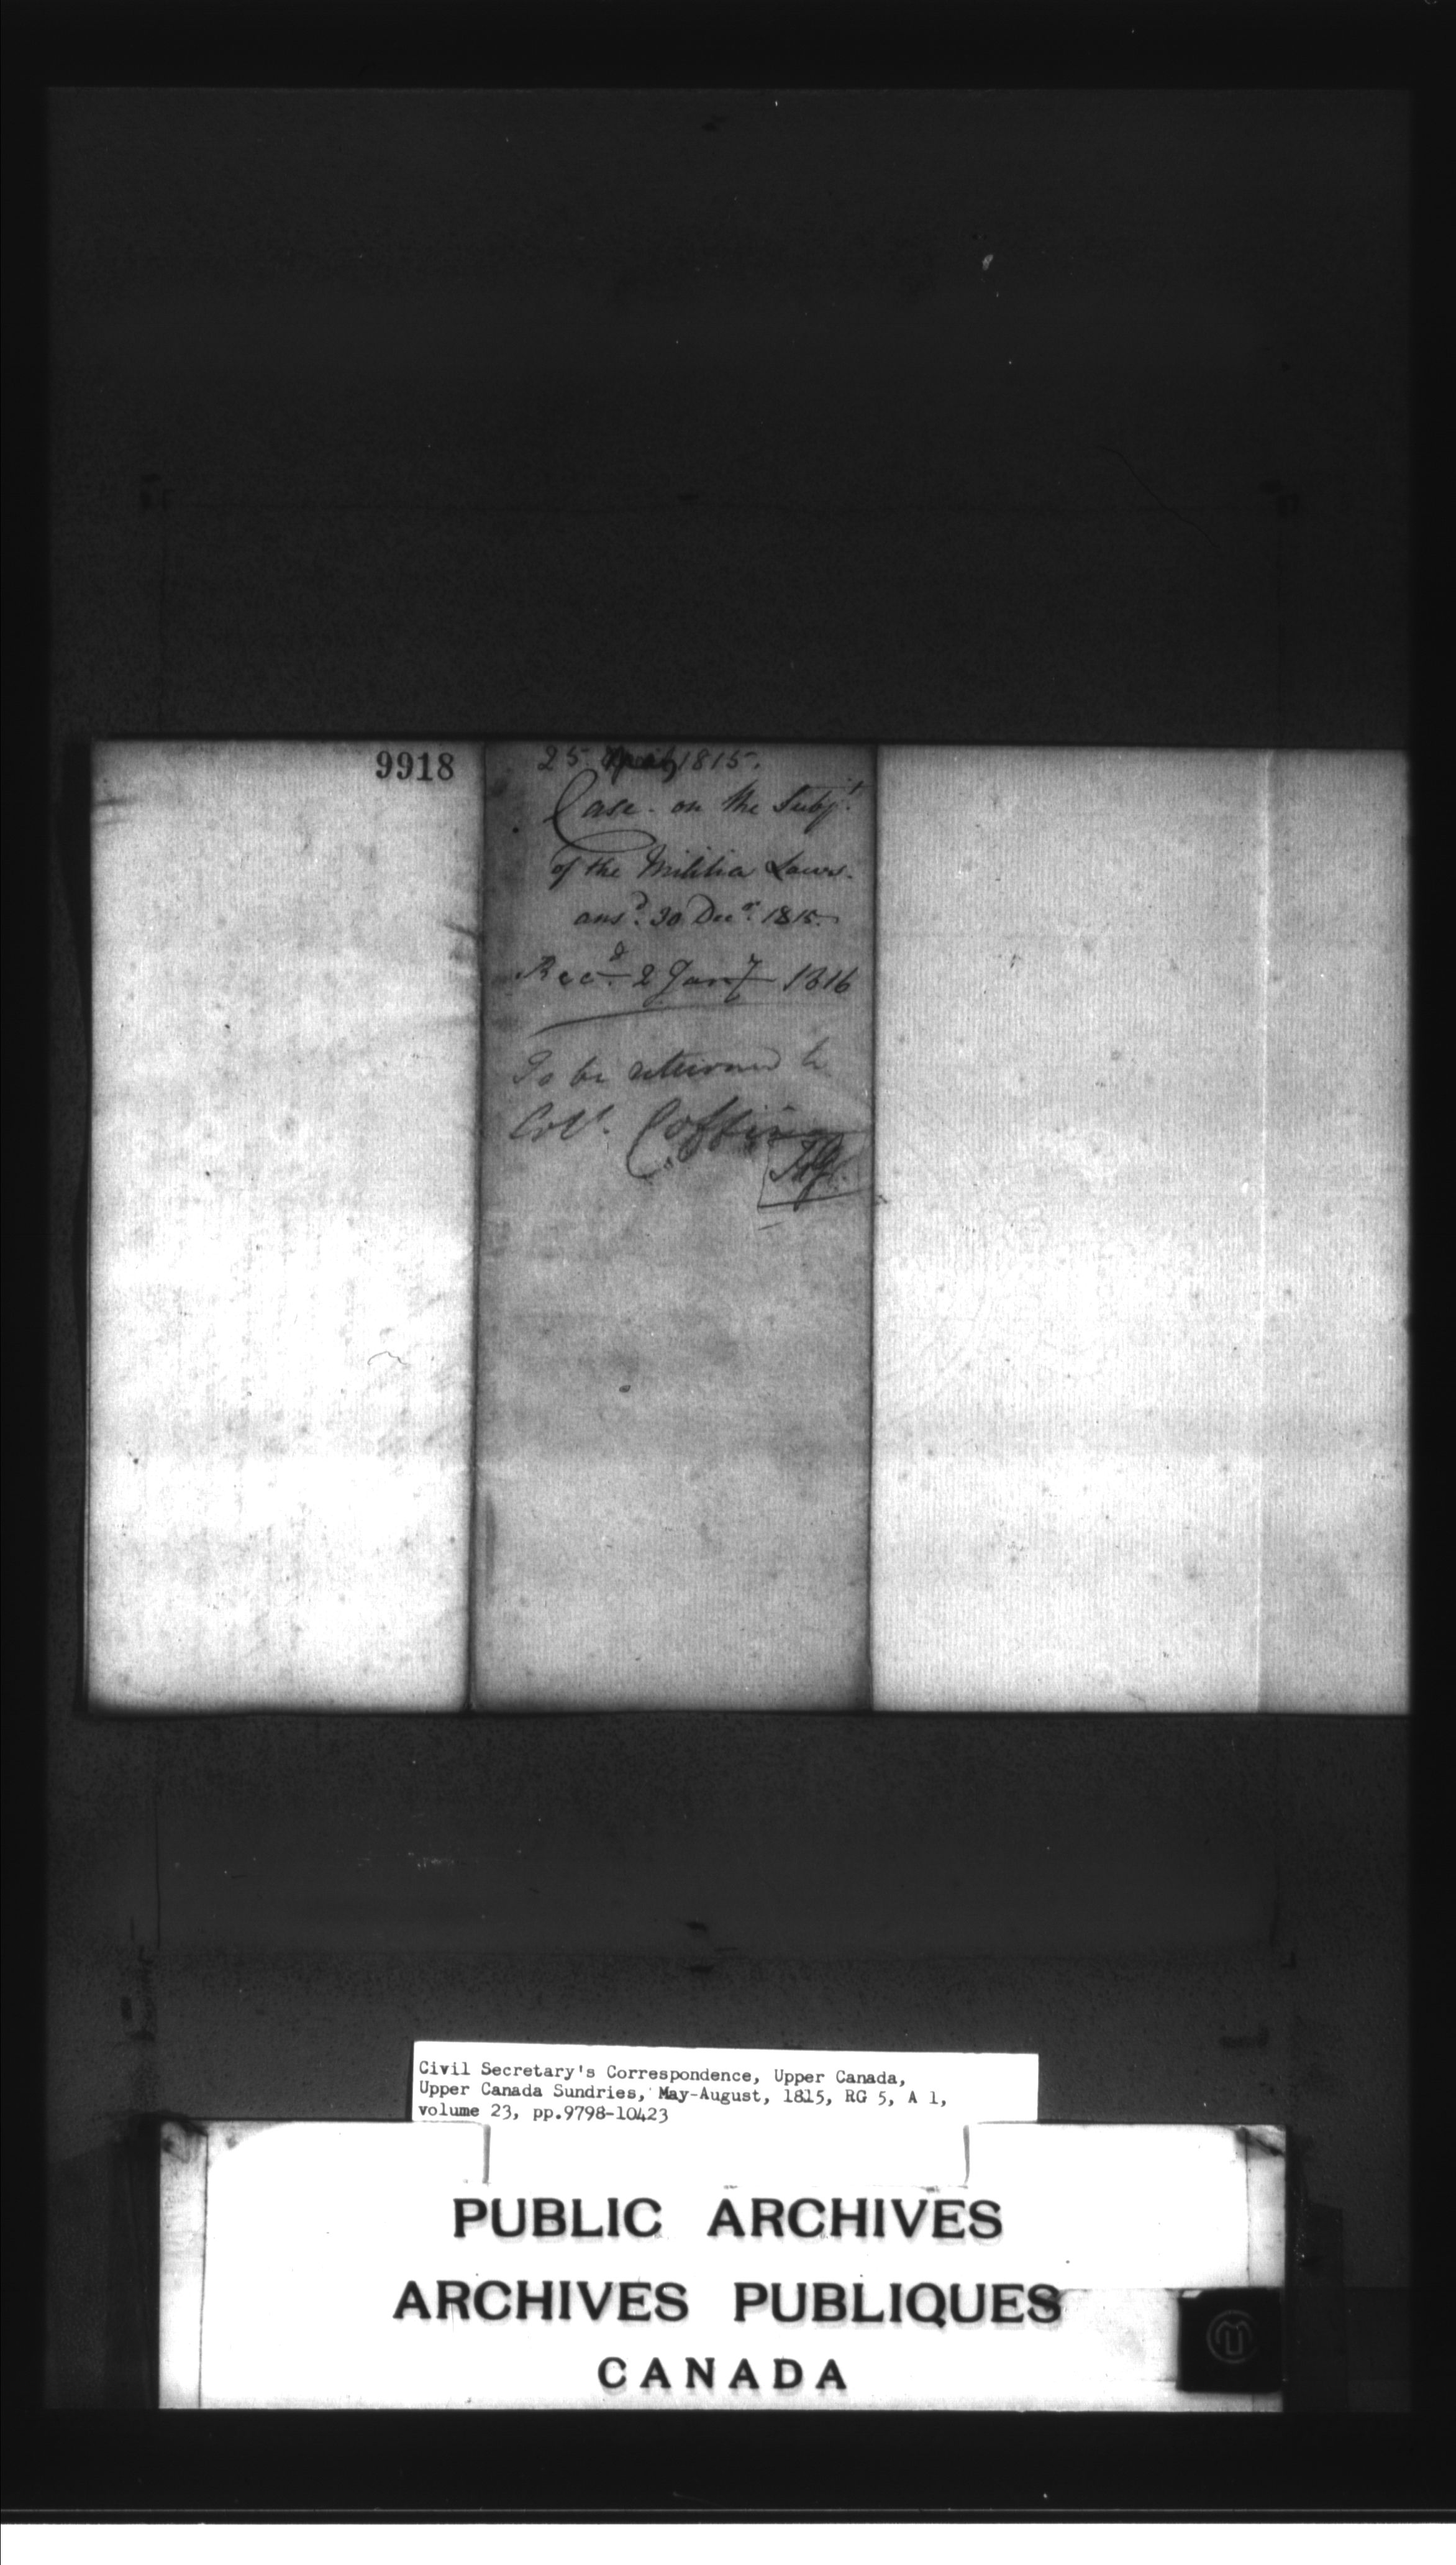 9918
25 May 1815.
Case. on the Subjt.
of the Militia Laws.
ansd. 30 Decr. 1815.
Recd. 2 Jany 1816
To be returned to
Coll. Coffin
Civil Secretary's Correspondence, Upper Canada,
Upper Canada Sundries, May-August, 1815, RG 5, A 1,
volume 23, pp.9798-10423
PUBLIC ARCHIVES
ARCHIVES PUBLIQUES
CANADA